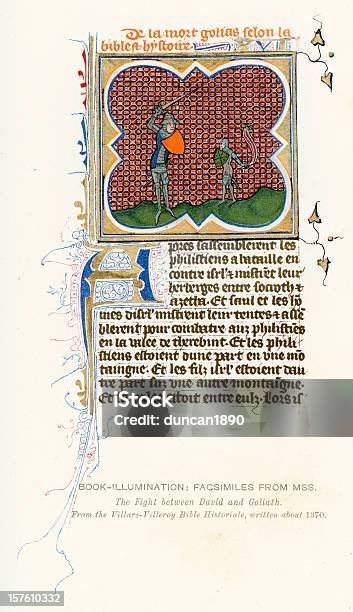 De la mort golias selon la
bible & hystoire
Apres sassemblerent les
philistiens a bataille en
contre isrl' & mistrent leur
herberges entre socoth &
azecha. Et saul et les
mes disrl' mistrent leur tentes & asse
blerent pour combatre aux philistiens
en la valee de therebint. Et les phili
stiens estoient dune part en une mo
taingne. Et les filz isrl' estoient dau
tre part sur une autre montaigne.
Et entre eulz. Lors is
iStock
Credit: duncan1890
BOOK-ILLUMINATION: FACSIMILES FROM MSS.
The Fight between David and Goliath.
From the Villars-Villeroy Bible Historiale, written about 1370.
157610332